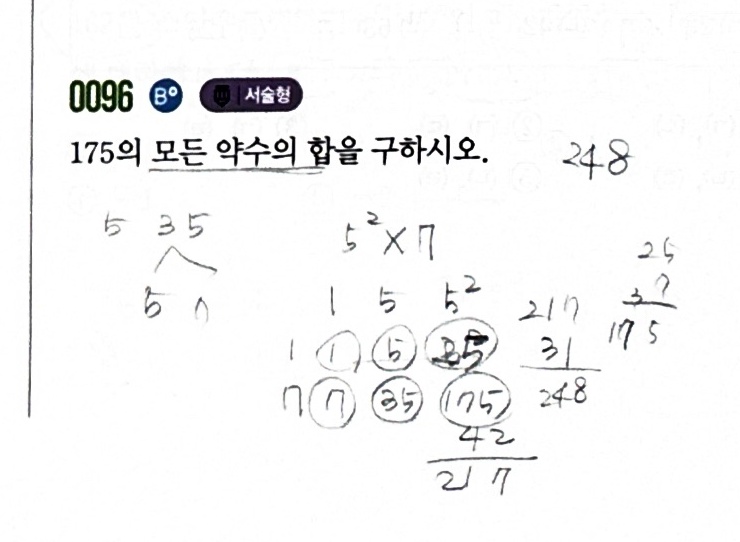 0096 B° 서술형
175의 모든 약수의 합을 구하시오.
248
5 35
5 7
5² × 7
1 5 5²
1 1 5 25
7 7 35 175
42
217
217
31
248
25
3 7
175